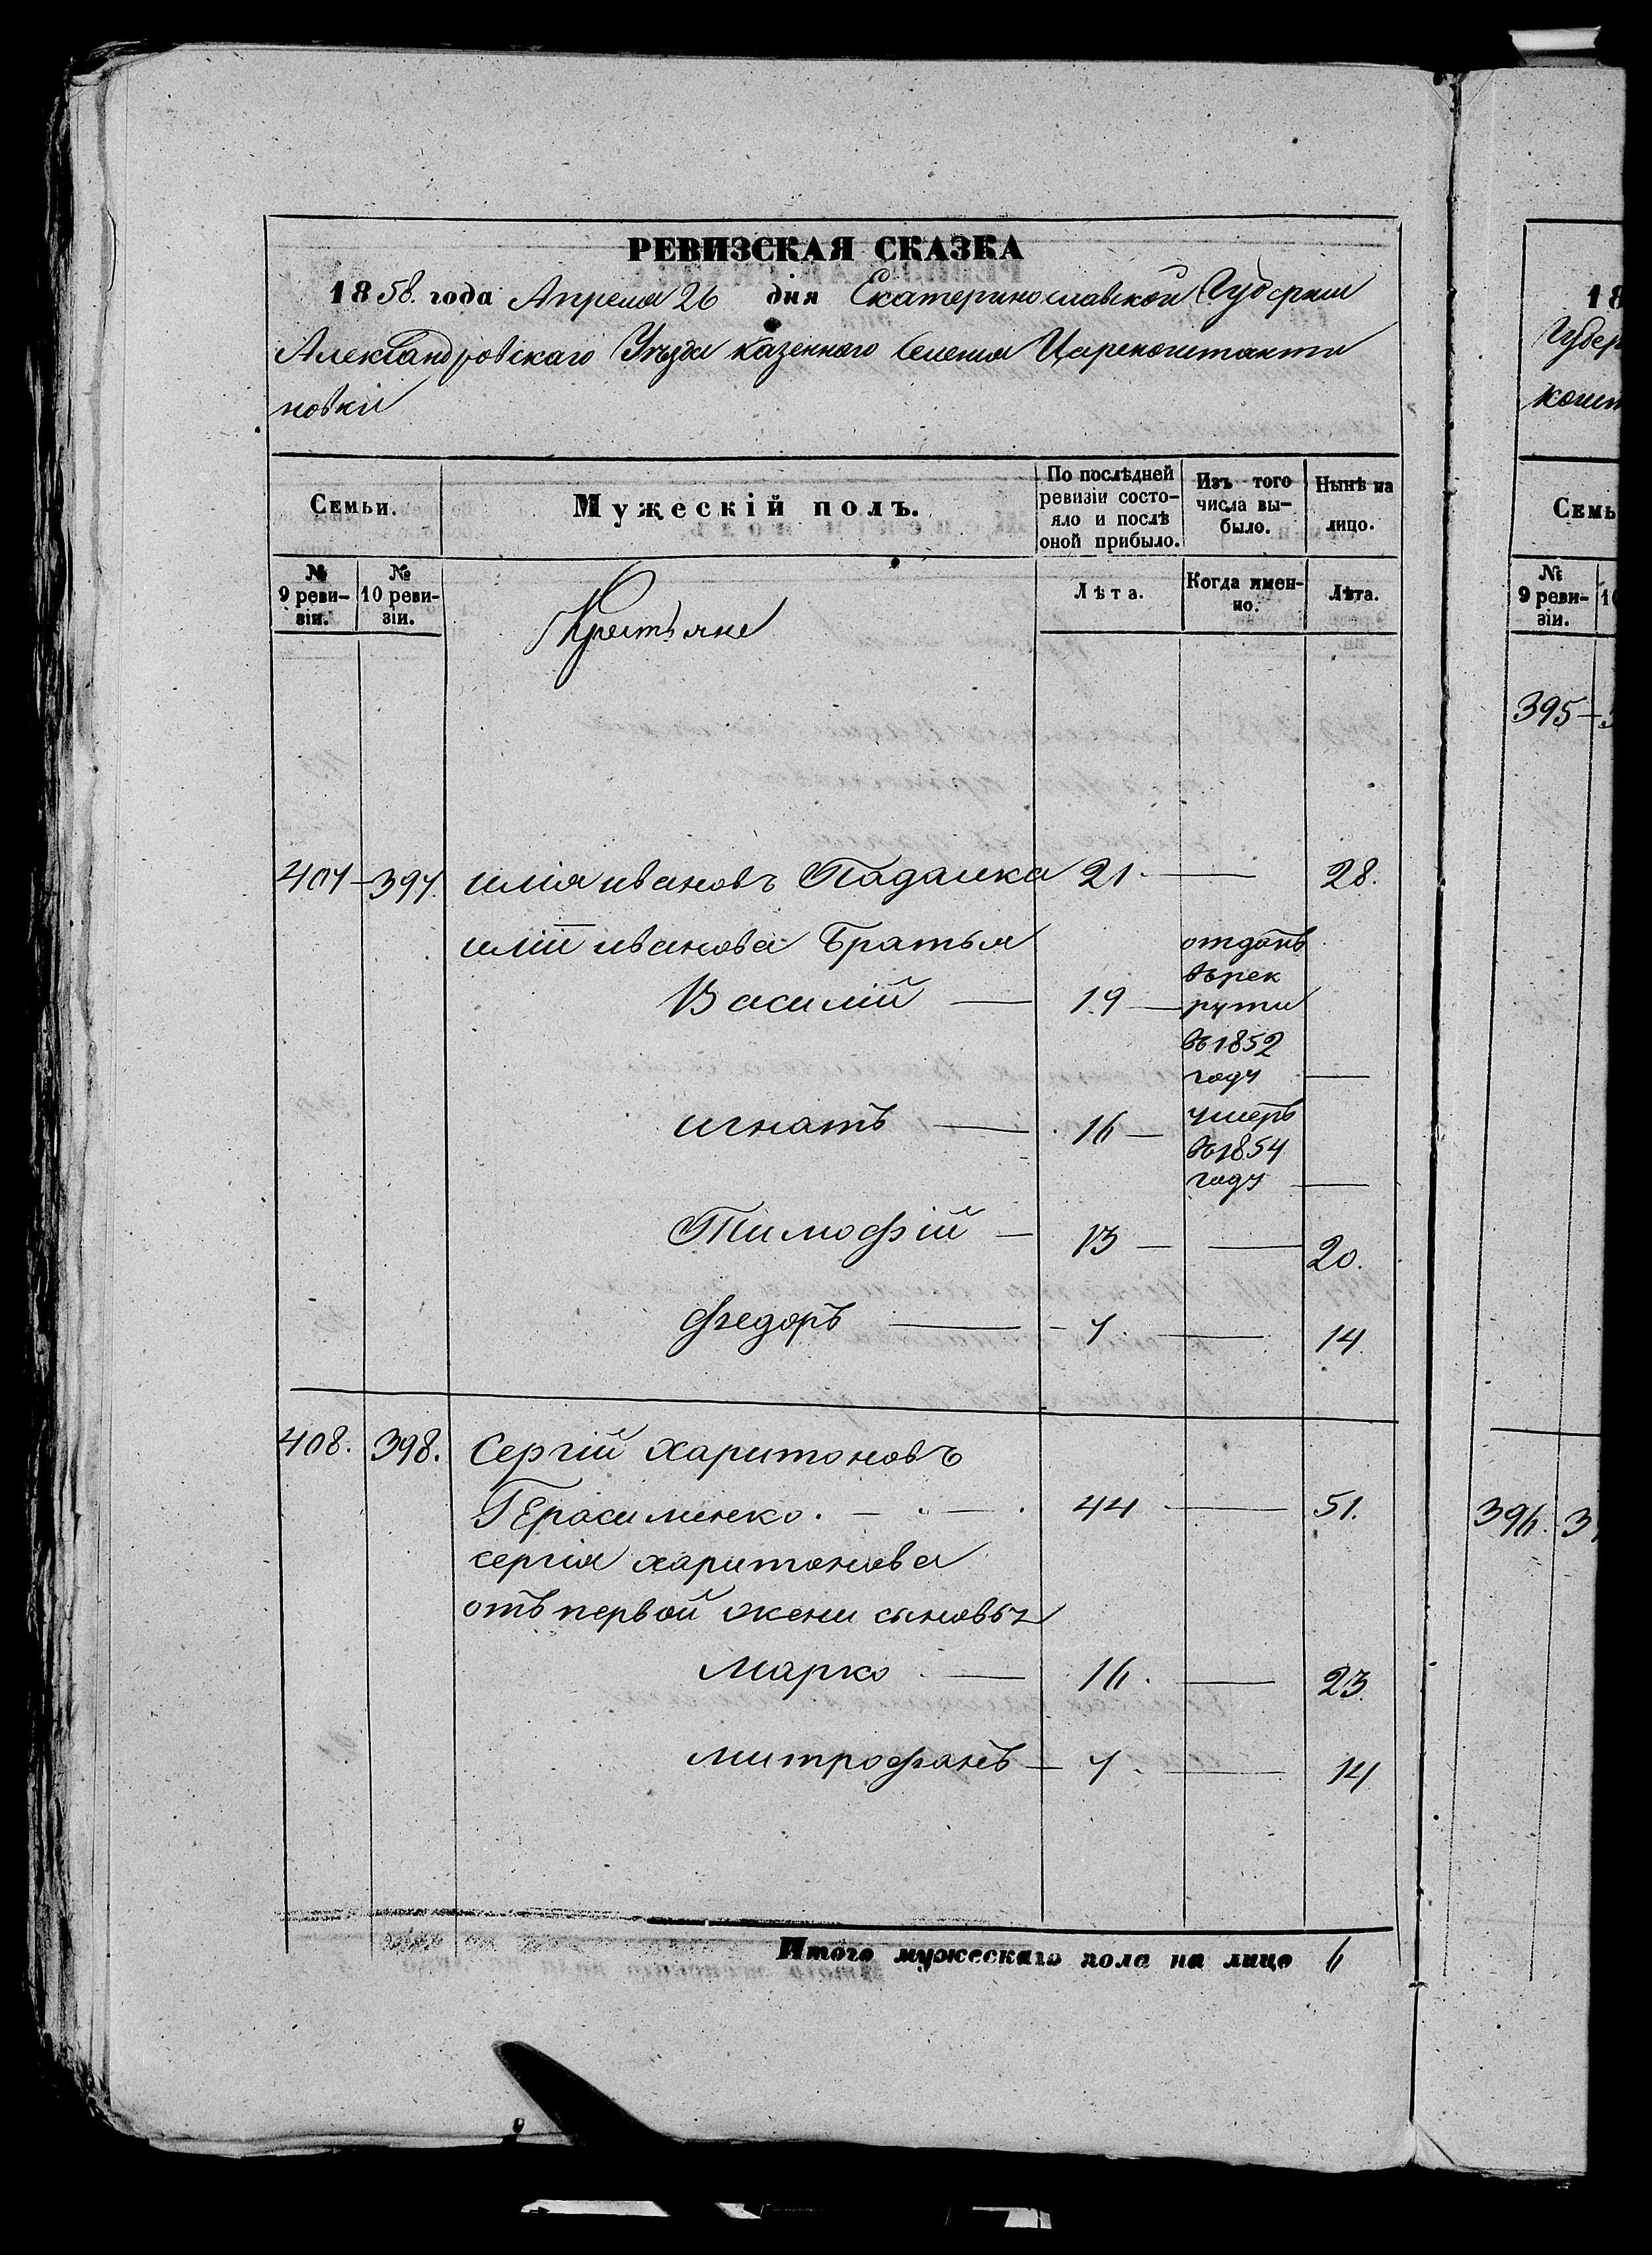 РЕВИЗСКАЯ СКАЗКА
1858. года Апреля 26 дня Екатеринославской Губернии
Александровскаго Уѣзда казенного Селенія Цареконстанти
новки
Семьи.
Мужескій полъ.
По послѣдней ревизіи состо-
яло и послѣ оной прибыло.
Изъ того числа вы-
было.
Нынѣ на лицо.
№ 9 реви-
зіи.
№ 10 реви-
зіи.
Крестьяне
Лѣта.
Когда имен-
но.
Лѣта.
407 — 397. илія ивановъ Падалка 21. — 28.
иліи иванова братья
Василій — 19 — отданъ
въ рек
руты
въ 1852
году —
игнатъ — 16 — умеръ
въ 1854
году —
Тимофій — 13 — — 20.
Федоръ — 7. — 14.
408. 398. Сергій харитоновъ
Герасименко. — 44 — 51.
сергія харитонова
отъ первой жени сыновья
Марко — 16. — 23.
митрофанъ — 7. — 14
Итого мужескаго пола на лицо 6
18
Губер
конст
Семь
№ 9 реви-
зіи.
395 — 3
396. 3